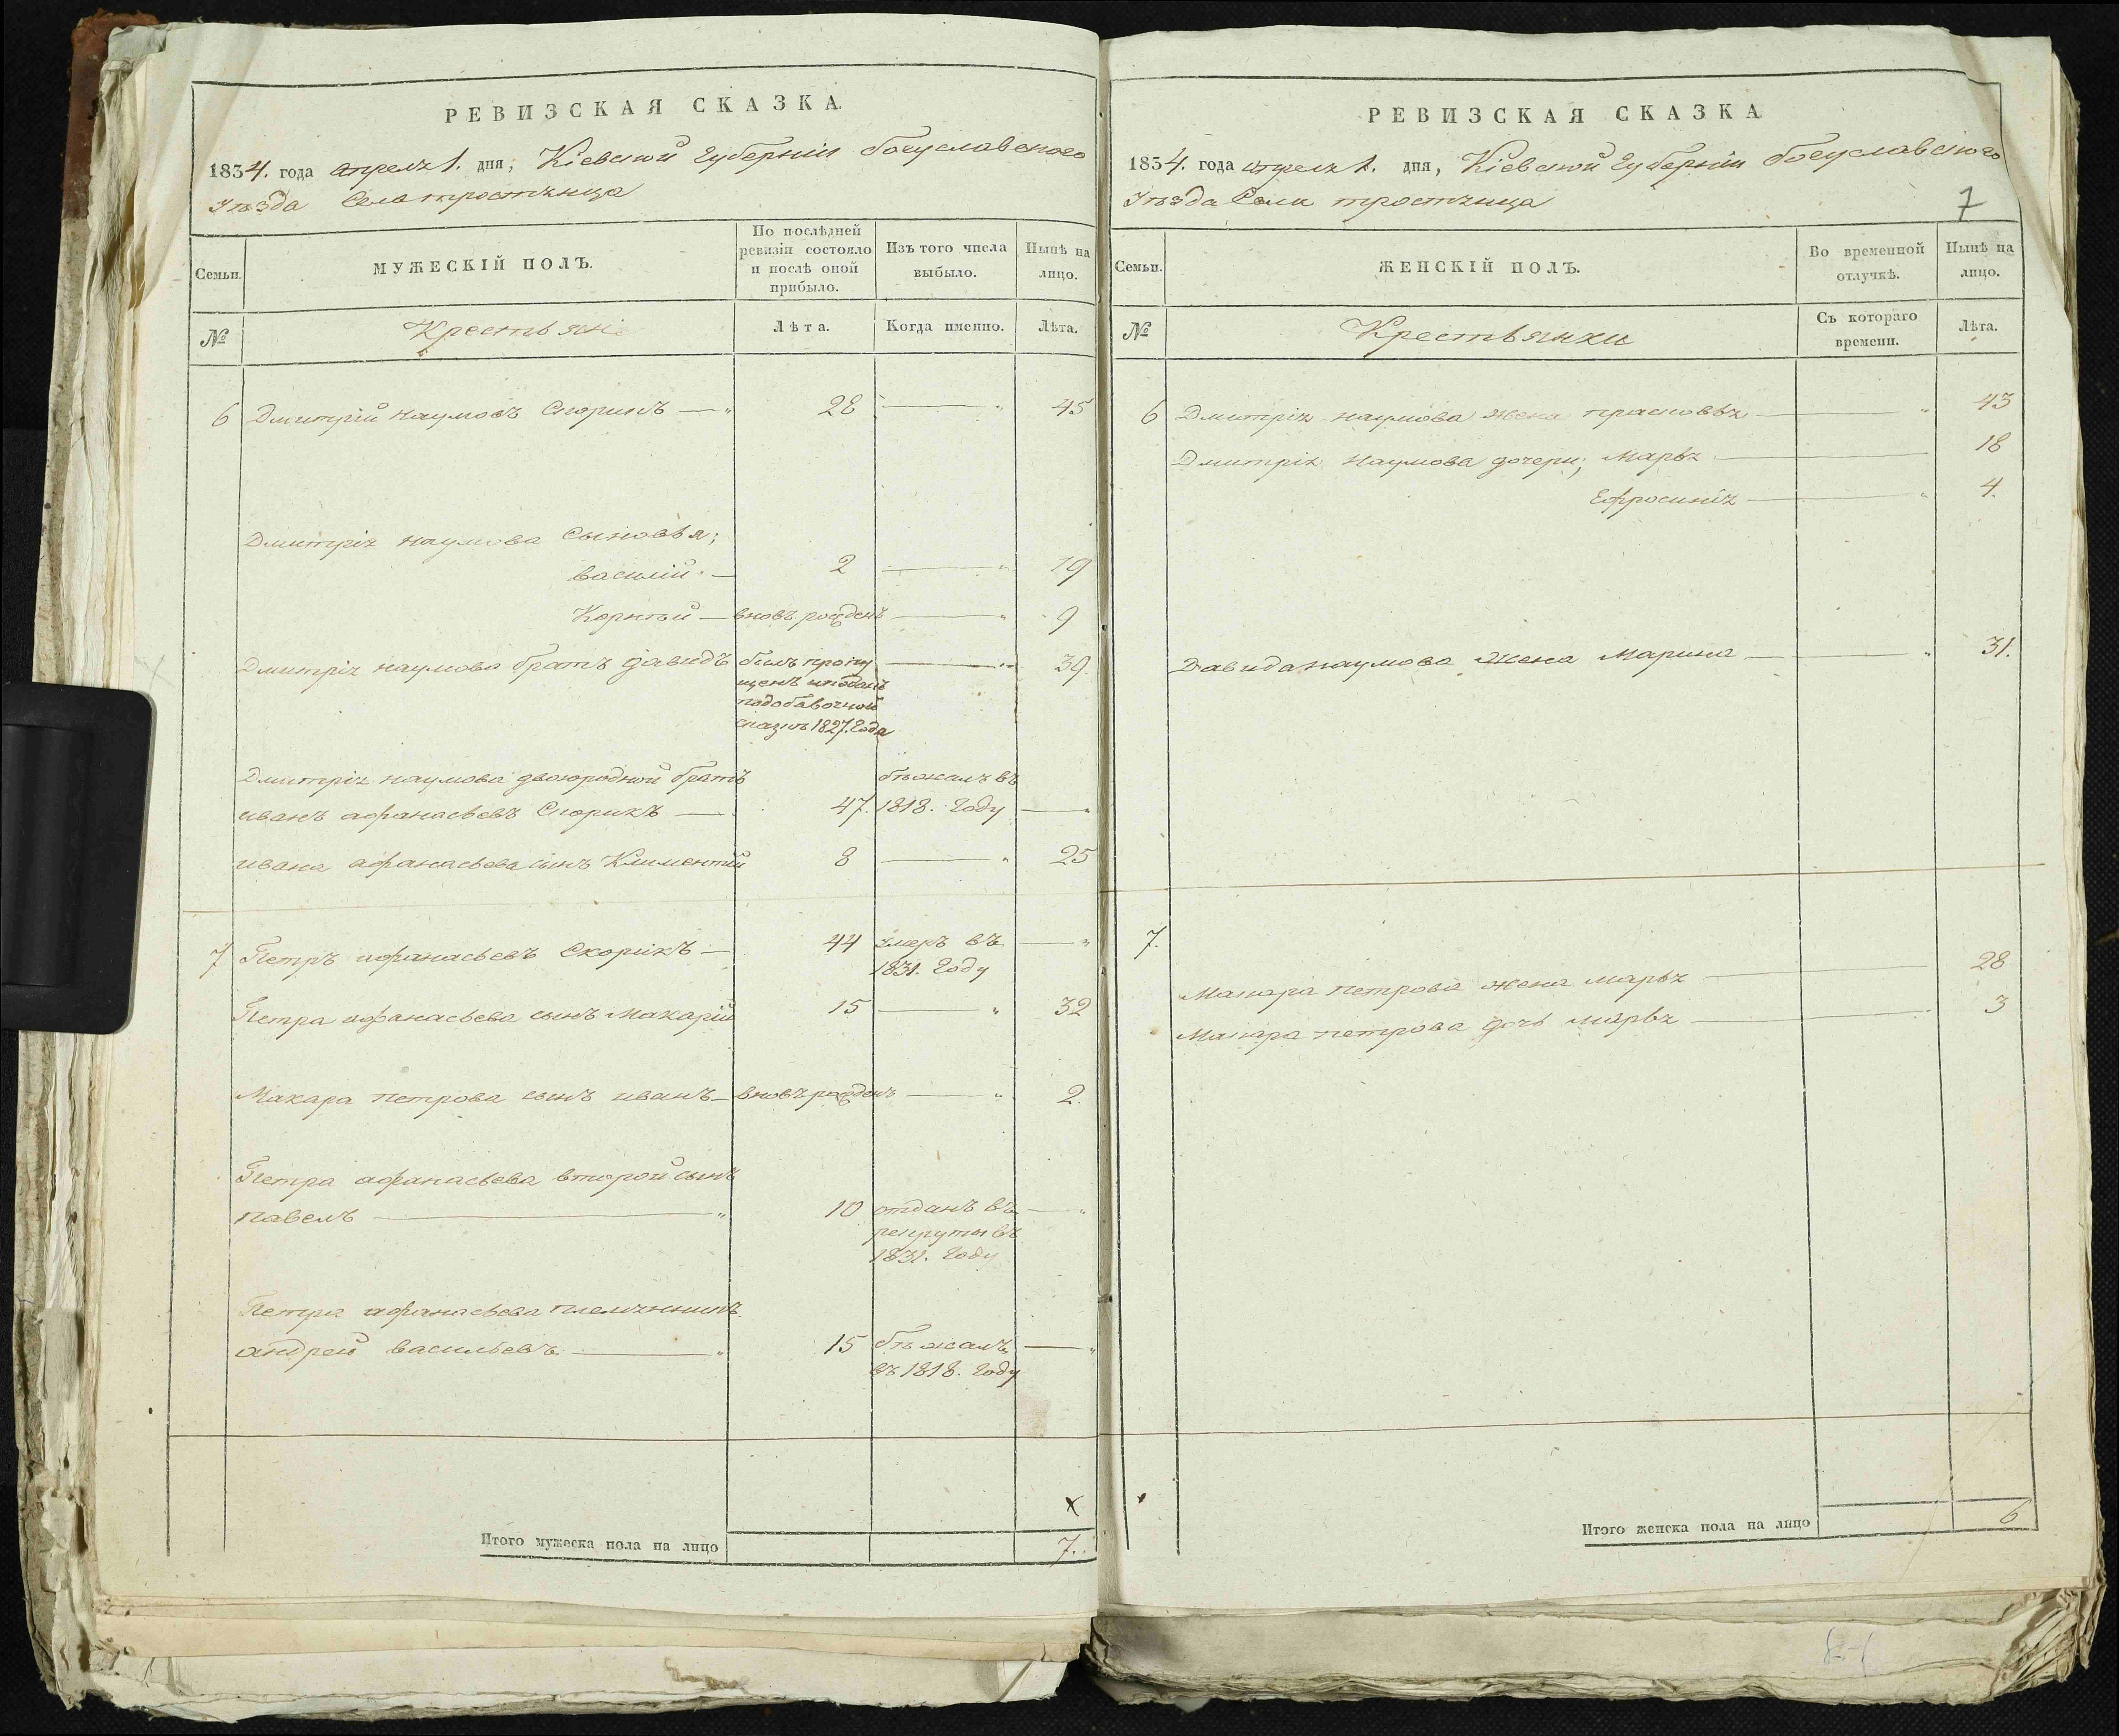 РЕВИЗСКАЯ СКАЗКА.
1834. года апреля 1. дня, Кіевской губерніи богуславского
уѣзда Села тростянца
Семьи.
МУЖЕСКІЙ ПОЛЪ.
По послѣдней ревизіи состояло и послѣ оной прибыло.
Изъ того числа выбыло.
Нынѣ на лицо.
№
Крестьяне
Лѣта.
Когда именно.
Лѣта.
6 Дмитрій наумовъ Скорикъ — 28 — 45
Дмитрія наумова Сыновья;
василій — 2 — 19
Корнѣй — вновь рожденъ — 9
Дмитрія наумова братъ давидъ былъ пропу — 39
щенъ и поданъ
по добавочной
сказкѣ 1827. Года
Дмитрія наумова двоюродной братъ бѣжалъ въ
иванъ афанасьевъ Скорикъ — 47. 1818. Году —
ивана афанасьева сынъ Климентій 8 — 25
7 Петръ афанасьевъ Скорикъ — 44 умеръ въ —
1831. Году
Петра афанасьева сынъ Макарій 15 — 32
Макара петрова сынъ иванъ — вновь рожденъ — 2.
Петра афанасьева второй сынъ
павелъ — 10 отданъ въ —
рекруты въ
1831. Году
Петра афанасьева племянникъ
андрей васильевъ — 15 бѣжалъ —
въ 1818. Году
х
Итого мужеска пола на лицо 7.
РЕВИЗСКАЯ СКАЗКА
1834. года апреля 1. дня, Кіевской губерніи богуславского
уѣзда Села тростянца
7
Семьи.
ЖЕНСКІЙ ПОЛЪ.
Во временной отлучкѣ.
Нынѣ на лицо.
№
Крестьянки
Съ котораго времени.
Лѣта.
6 Дмитрія наумова жена прасковья — 43
Дмитрія наумова дочери; Марья — 18
Ефросинія — 4.
Давида наумова жена Марина — 31.
7.
Макара петрова жена марья — 28
Макара петрова дочь марья — 3
Итого женска пола на лицо 6